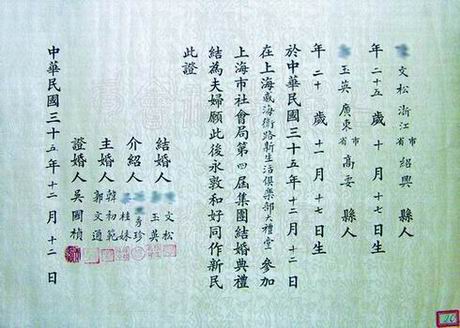 文松 浙江省市 紹興 縣人
年二十五歲十月十七日生
玉英 廣東省市 高要 縣人
年二十歲十一月十七日生
於中華民國三十五年十二月十二日
在上海威海衛路新生活俱樂部大禮堂參加
上海市社會局第四屆集團結婚典禮
結為夫婦願此後永敦和好同作新民
此證
結婚人 文松
玉英
介紹人 秀珍
桂妹
主婚人 韓初範
郭文通
證婚人 吳國楨
中華民國三十五年十二月十二日